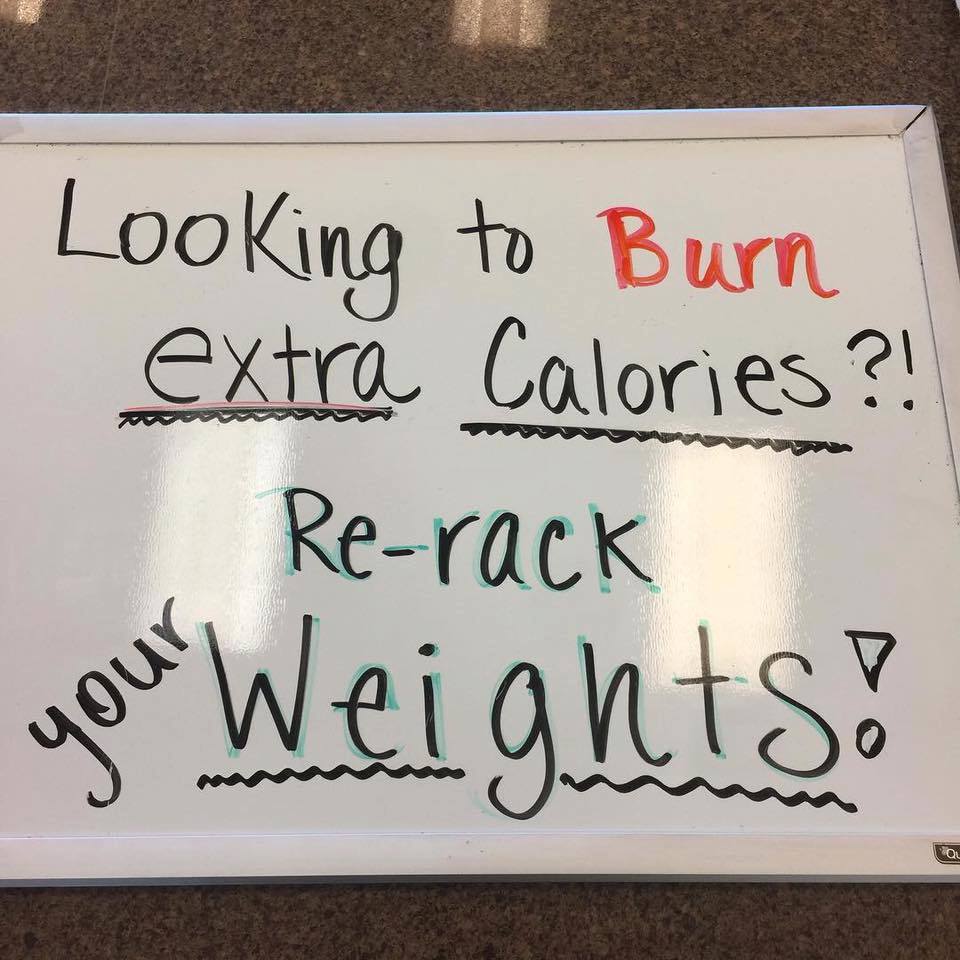 Looking to Burn
extra Calories?!
Re-rack
your Weights!